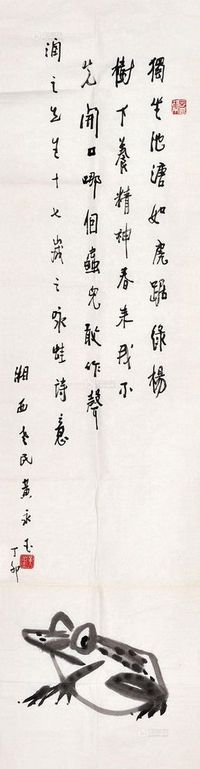 獨坐池塘如虎踞綠楊
樹下養精神春来我不
先開口哪個蟲兒敢作聲
润之先生十七歲之咏蛙詩意
湘西老民黄永玉
丁卯